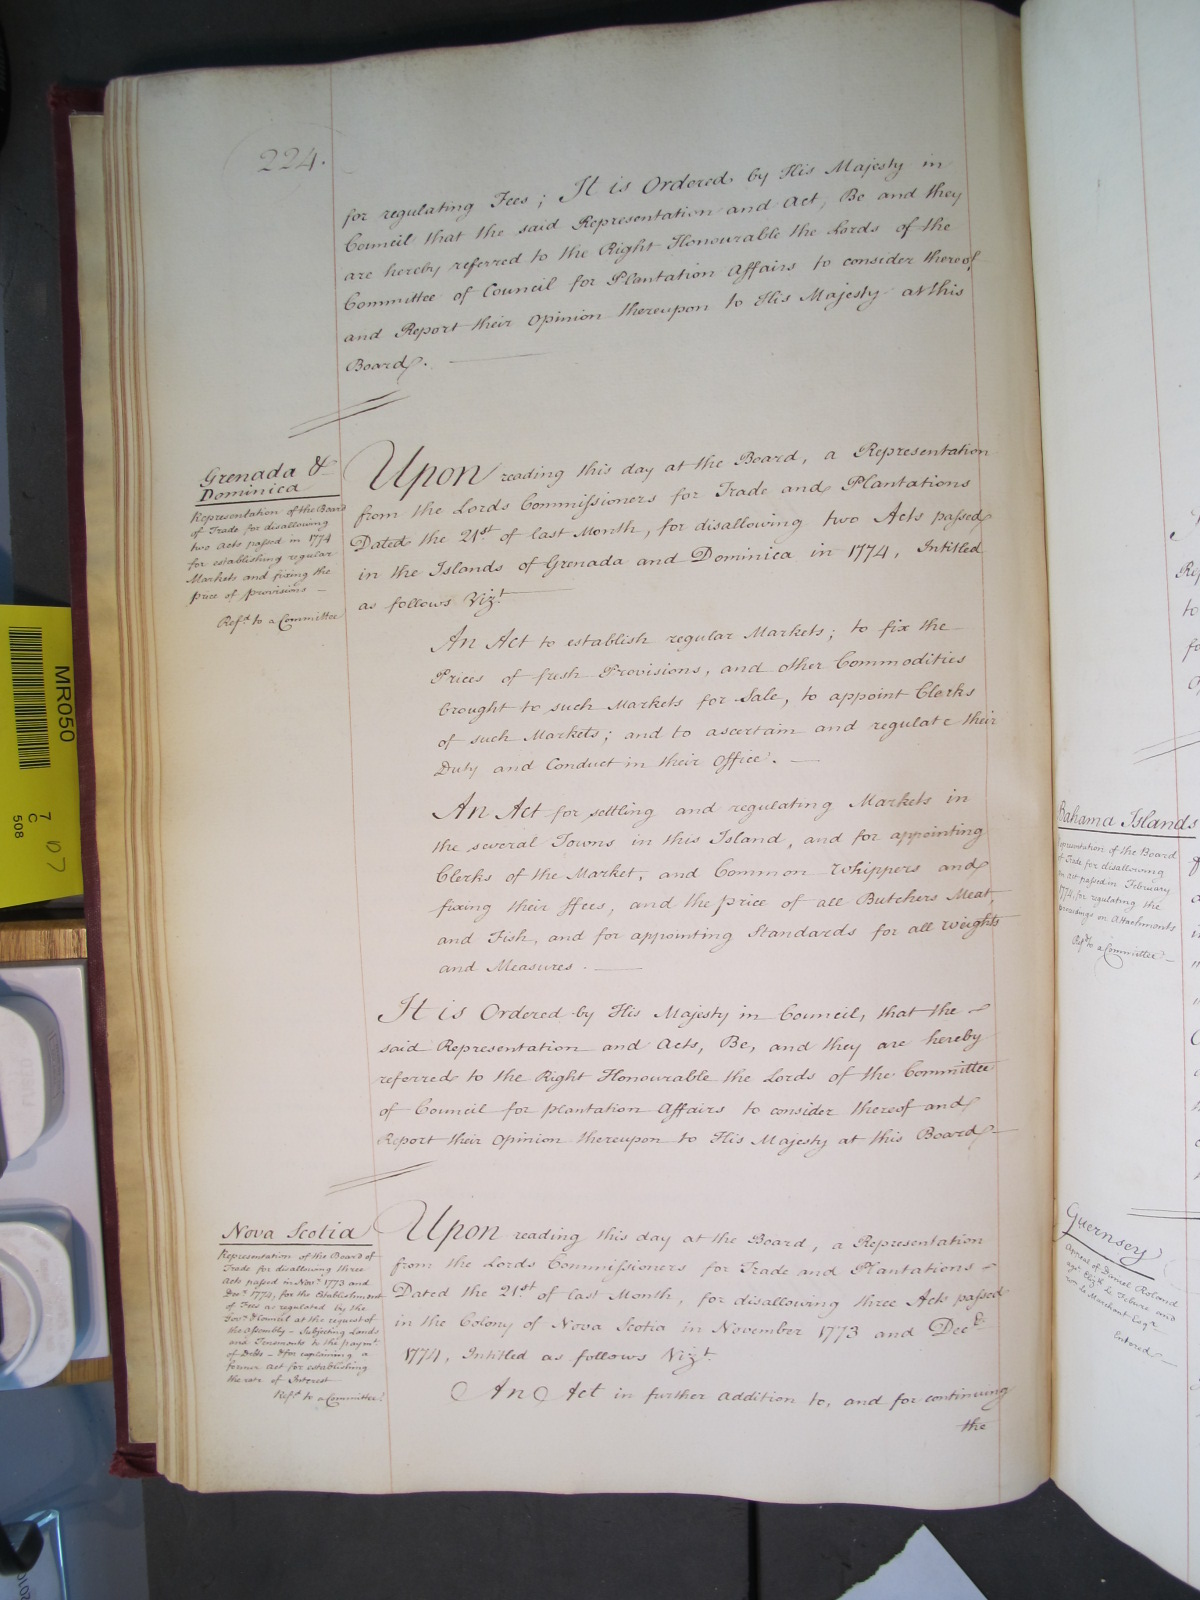 224.
for regulating Fees; It is Ordered by His Majesty in
Council that the said Representation and Act, Be and they
are hereby referred to the Right Honourable the Lords of the
Committee of Council for Plantation Affairs to consider thereof
and Report their Opinion thereupon to His Majesty at this
Board.
Grenada &
Dominica
Representation of the Board
of Trade for disallowing
two Acts passed in 1774
for establishing regular
Markets and fixing the
price of provisions
Refd. to a Committee
Upon reading this day at the Board, a Representation
from the Lords Commissioners for Trade and Plantations
Dated the 21st of last Month, for disallowing two Acts passed
in the Islands of Grenada and Dominica in 1774, Intitled
as follows Vizt.
An Act to establish regular Markets; to fix the
Prices of fresh Provisions, and other Commodities
brought to such Markets for Sale, to appoint Clerks
of such Markets; and to ascertain and regulate their
Duty and Conduct in their Office.
An Act for settling and regulating Markets in
the several Towns in this Island, and for appointing
Clerks of the Market, and Common Whippers and
fixing their ffees, and the price of all Butchers Meat,
and Fish, and for appointing Standards for all weights
and Measures.
It is Ordered by His Majesty in Council, that the
said Representation and Acts, Be, and they are hereby
referred to the Right Honourable the Lords of the Committee
of Council for plantation Affairs to consider thereof and
Report their Opinion thereupon to His Majesty at this Board
Nova Scotia
Representation of the Board of
Trade for disallowing three
Acts passed in Novr. 1773 and
Decr. 1774, for the Establishment
of Fees as regulated by the
Govr. & Council at the request of
the Assembly - Subjecting Lands
and Tenements to the paymt.
of Debts - & for explaining a
former Act for establishing
the rate of Interest
Refd. to a Committee
Upon reading this day at the Board, a Representation
from the Lords Commissioners for Trade and Plantations
Dated the 21st of last Month, for disallowing three Acts passed
in the Colony of Nova Scotia in November 1773 and Decr.
1774, Intitled as follows Vizt.
An Act in further addition to, and for continuing
the
Bahama Islands
Representation of the Board
of Trade for disallowing
an Act passed in February
1774, for regulating the
proceedings on Attachments
Refd. to a Committee
Guernsey
Appeal of Daniel Roland
Entered
MR050
7
C
508